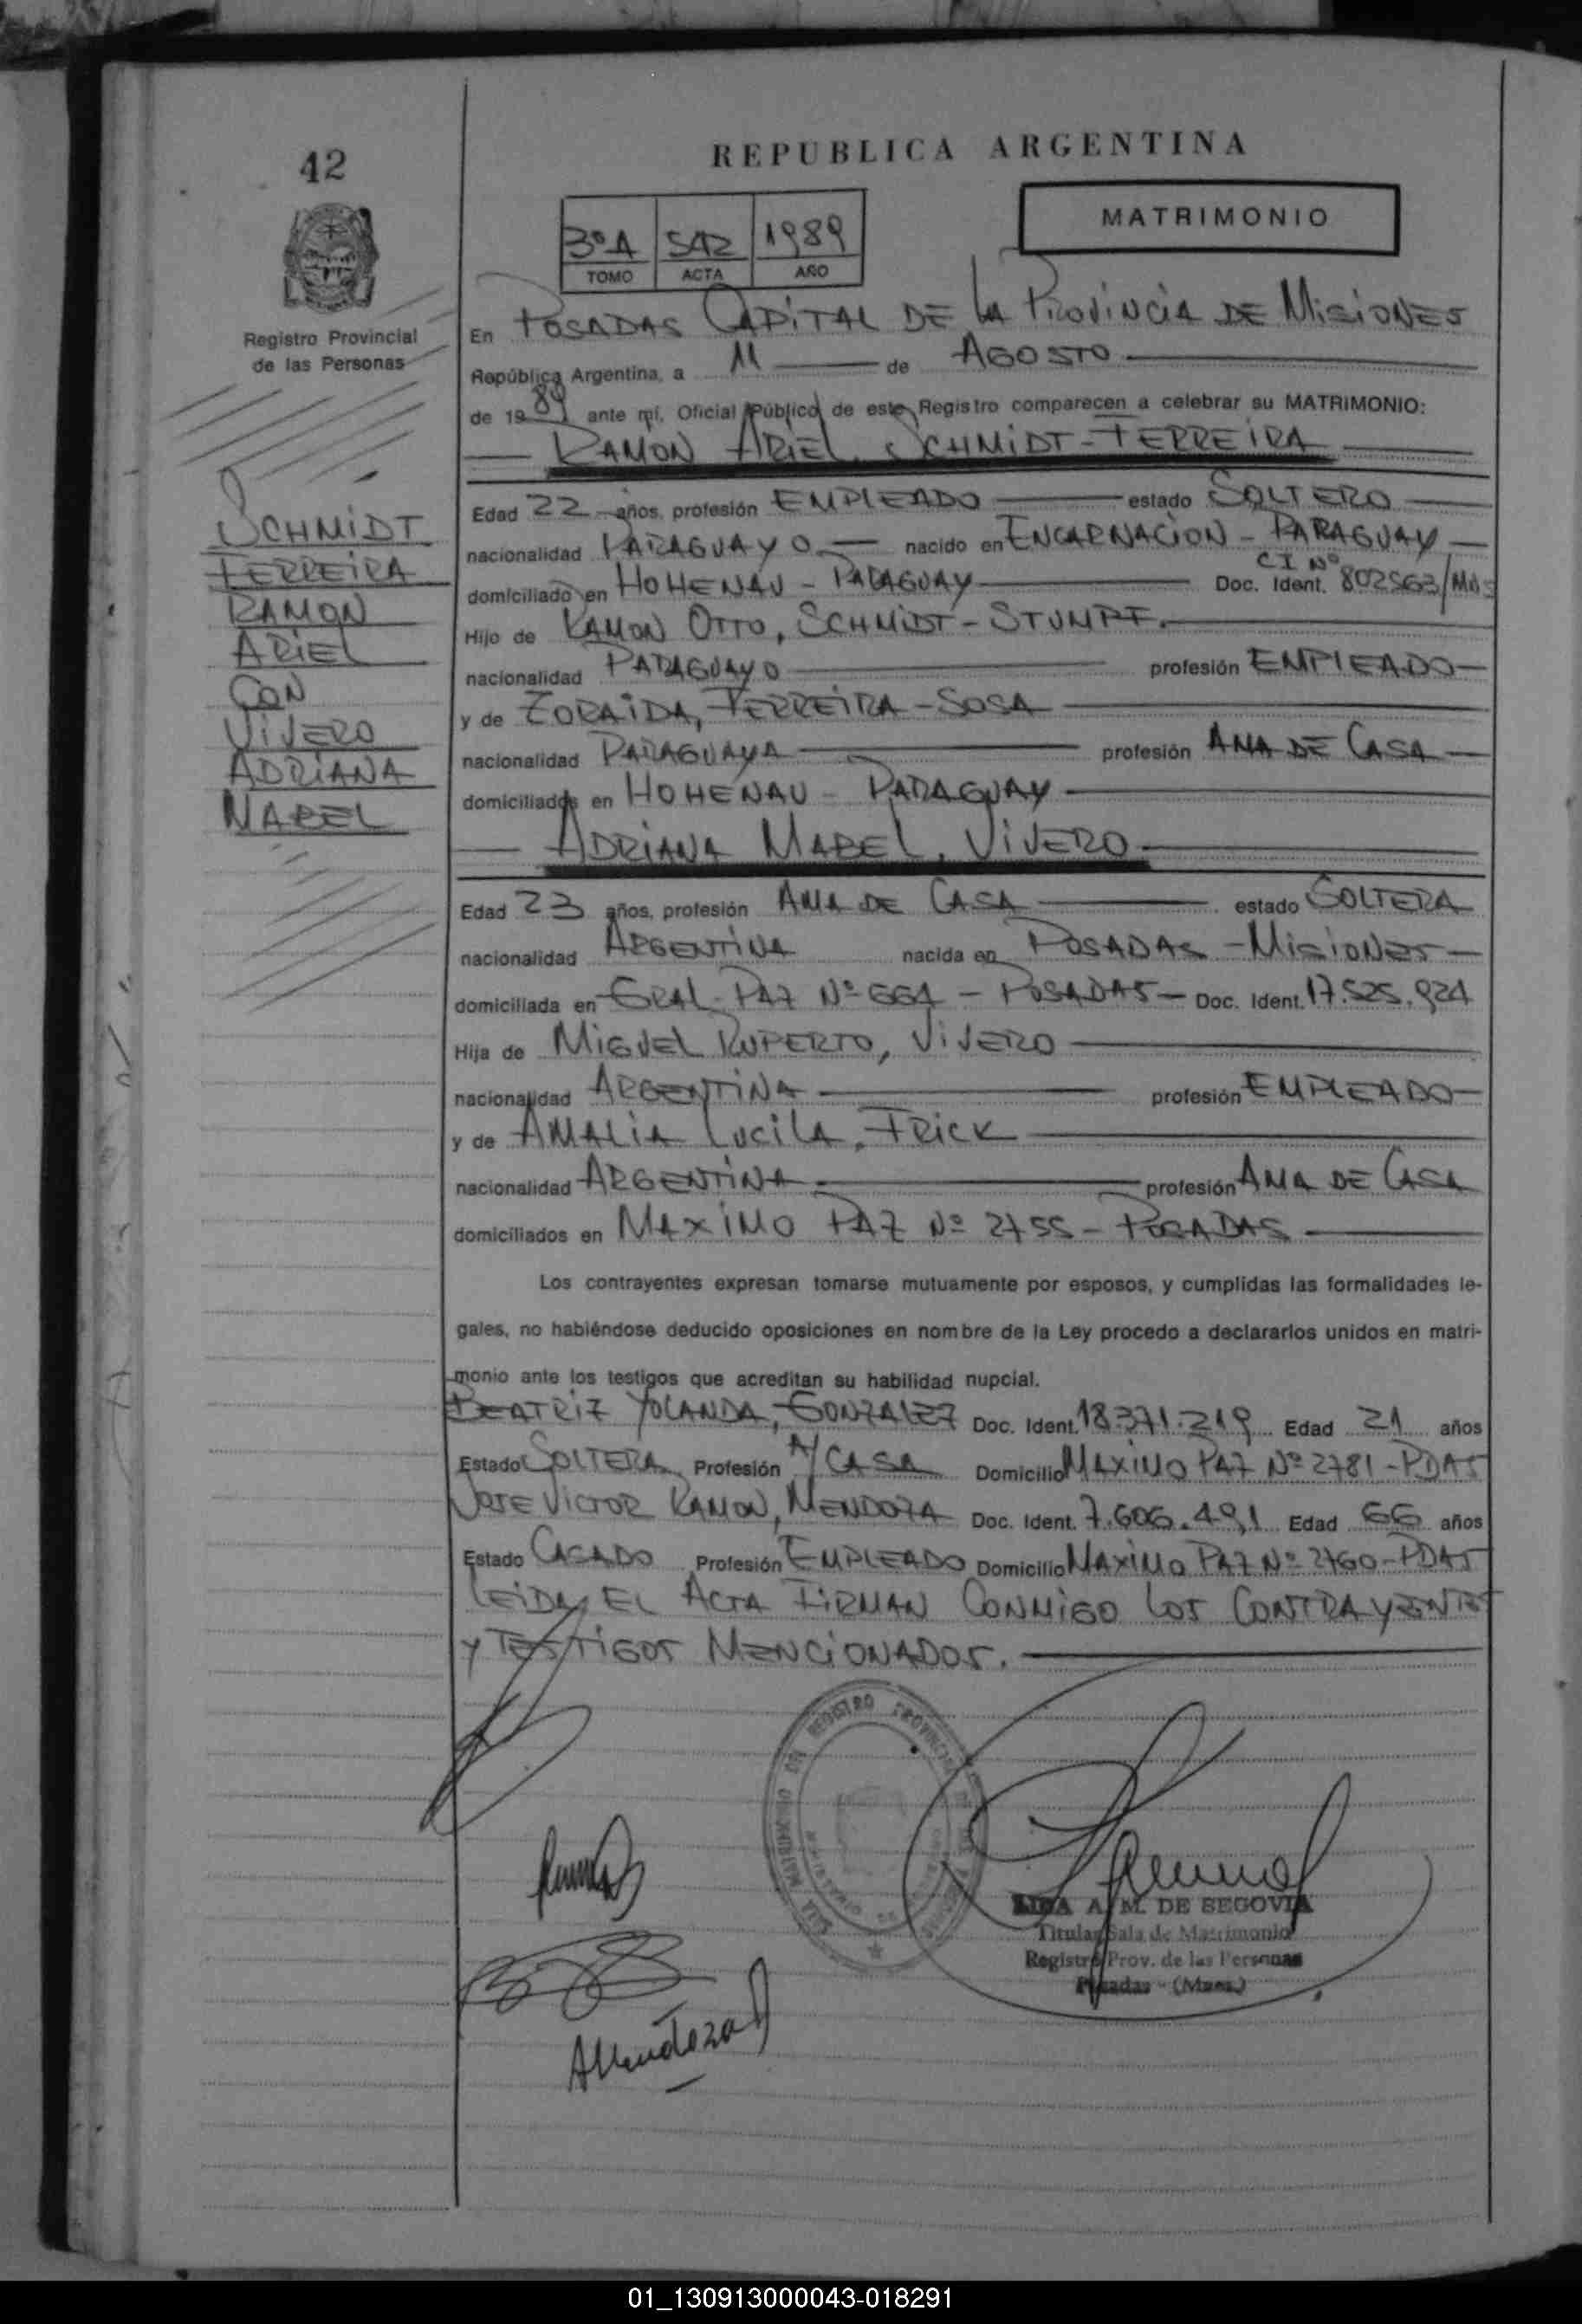 42
REPUBLICA ARGENTINA
MATRIMONIO
3ºA 542 1989
TOMO ACTA AÑO
Registro Provincial
de las Personas
En POSADAS CAPITAL DE LA PROVINCIA DE MISIONES
República Argentina, a 11 de AGOSTO
de 1989 ante mí, Oficial Público de este Registro comparecen a celebrar su MATRIMONIO:
RAMON ARIEL, SCHMIDT-FERREIRA
SCHMIDT
FERREIRA
RAMON
ARIEL
CON
VIVERO
ADRIANA
MABEL
Edad 22 años, profesión EMPLEADO estado SOLTERO
nacionalidad PARAGUAYO nacido en ENCARNACION - PARAGUAY
domiciliado en HOHENAU - PARAGUAY Doc. Ident. CI Nº 802563/Mns
Hijo de RAMON OTTO, SCHMIDT-STUMPF.
nacionalidad PARAGUAYO profesión EMPLEADO
y de ZORAIDA, FERREIRA-SOSA
nacionalidad PARAGUAYA profesión AMA DE CASA
domiciliados en HOHENAU - PARAGUAY
ADRIANA MABEL, VIVERO
Edad 23 años, profesión AMA DE CASA estado SOLTERA
nacionalidad ARGENTINA nacida en POSADAS - MISIONES
domiciliada en GRAL. PAZ Nº 664 - POSADAS - Doc. Ident. 17.525.924
Hija de MIGUEL RUPERTO, VIVERO
nacionalidad ARGENTINA profesión EMPLEADO
y de AMALIA LUCILA, FRICK
nacionalidad ARGENTINA profesión AMA DE CASA
domiciliados en MAXIMO PAZ Nº 2755 - POSADAS
Los contrayentes expresan tomarse mutuamente por esposos, y cumplidas las formalidades le-
gales, no habiéndose deducido oposiciones en nombre de la Ley procedo a declararlos unidos en matri-
monio ante los testigos que acreditan su habilidad nupcial.
BEATRIZ YOLANDA, GONZALEZ Doc. Ident. 18.371.219 Edad 21 años
Estado SOLTERA Profesión A/CASA Domicilio MAXIMO PAZ Nº 2781-PDAS
JOSE VICTOR RAMON, MENDOZA Doc. Ident. 7.606.491 Edad 66 años
Estado CASADO Profesión EMPLEADO Domicilio MAXIMO PAZ Nº 2760-PDAS
LEIDA EL ACTA FIRMAN CONMIGO LOS CONTRAYENTES
Y TESTIGOS MENCIONADOS.
REGISTRO PROVINCIAL
A. M. DE SEGOVIA
Titular Sala de Matrimonio
Registro Prov. de las Personas
Posadas - (Mnes.)
AMendoza
01_130913000043-018291